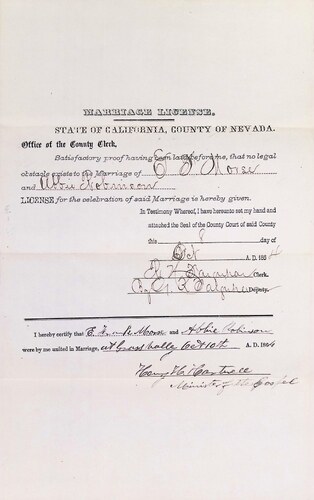 MARRIAGE LICENSE.
STATE OF CALIFORNIA, COUNTY OF NEVADA.
Office of the County Clerk,
Satisfactory proof having been laid before me, that no legal
obstacle exists to the Marriage of E F Morse
and Abbie Robinson
LICENSE for the celebration of said Marriage is hereby given.
In Testimony Whereof, I have hereunto set my hand and
attached the Seal of the County Court of said County
this 8 day of
Oct A.D. 1864
Farquhar Clerk.
By Deputy.
I hereby certify that E. and Abbie Robinson
were by me united in Marriage, at Grass Valley Oct 10th A. D. 1864
Henry H
Minister of the Gospel